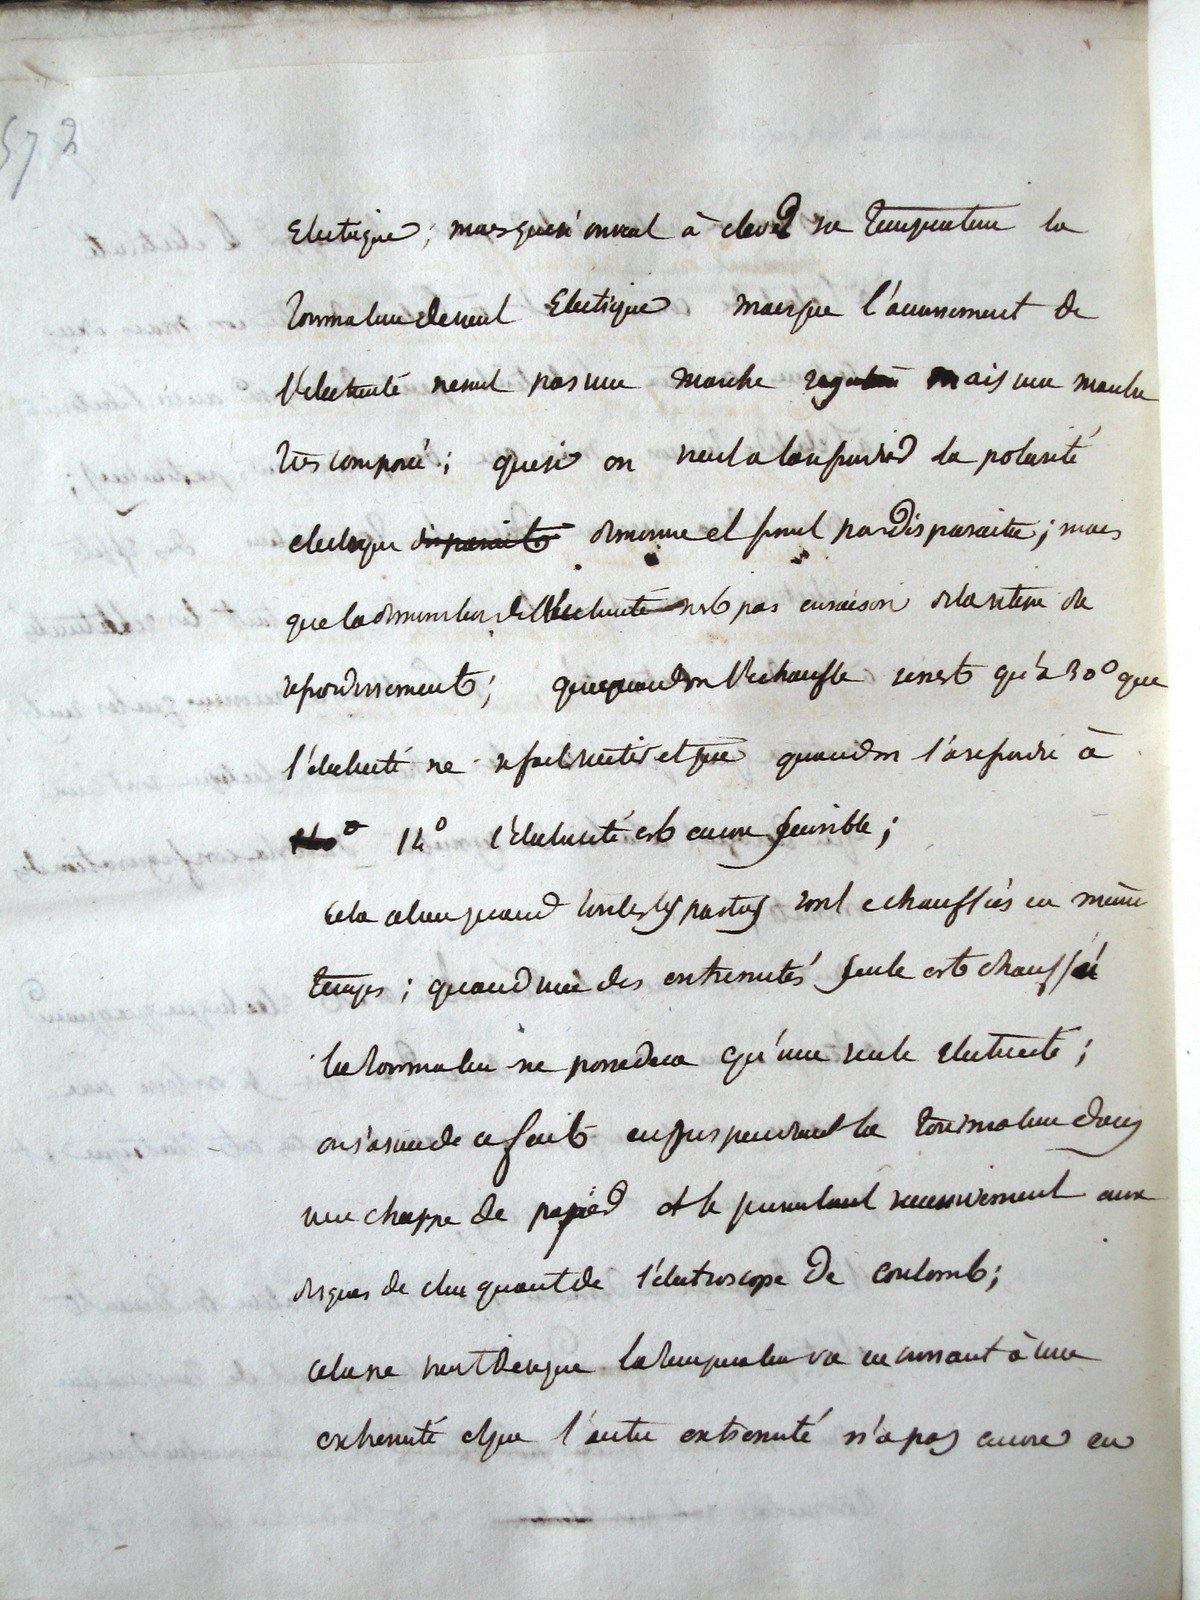 572
Electrique; mais quesi onvient à elever sa Temperature la
Tourmaline devient Electrique mais que l'accroissement de
l'electricité nesuit pas une marche reguliere mais une marche
tres composée; quesi on vient a larefroidir la polarité
electrique disparait diminue et finit par disparaitre; mais
que ladiminution de l'électricité n'est pas enraison delavitesse de
refroidissement; que quandon l'échauffe cen'est qu'à 30° que
l'électricité ne se fait sentir et que quandon l'arefroidi à
14° l'électricité est encore sensible;
Cela alieu quand toutes les parties sont echauffées en même
temps; quand une des extremités seule est chauffée
la tourmaline ne possedera qu'une seule electricité;
on s'assure de ce fait en suspendant la tourmaline dans
une chappe de papier et le presentant successivement aux
disques de clinquant de l'électroscope de coulomb;
cela ne vient de ce que la temperature va en croissant à une
extremité et que l'autre extremité n'a pas encore eu